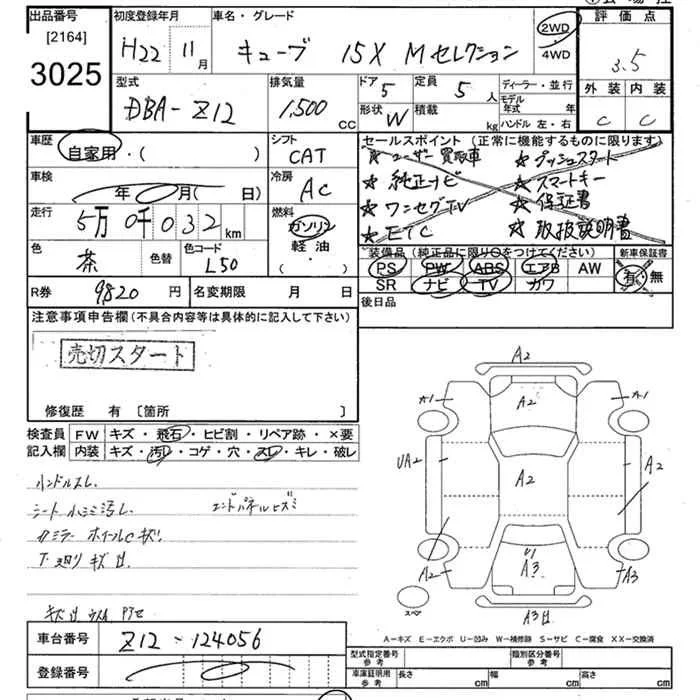 出品番号 初度登録年月 車名・グレード 評価点
[2164]
3025
H22 11月 キューブ 15X Mセレクション 2WD 4WD 3.5
外装 内装
C C
型式 排気量 ドア 5 定員 5人 ディーラー・並行
DBA-Z12 1,500cc 形状 W 積載 kg モデル年式 年
ハンドル 左・右
車歴 シフト セールスポイント (正常に機能するものに限ります)
自家用・( ) CAT
☆ユーザー買取車 ☆プッシュスタート
車検 冷房 ☆純正ナビ ☆スマートキー
年 月( 日) AC ☆ワンセグTV ☆保証書
走行 燃料 ☆ETC ☆取扱説明書
5万0千032km ガソリン
軽油・
( )
色 色替 色コード
茶 L50
装備品 (純正品に限り○をつけてください) 新車保証書
PS PW ABS エアB AW 有・無
SR ナビ TV カワ
R券 9820円 名変期限 月 日 後日品
注意事項申告欄 (不具合内容等は具体的に記入して下さい)
売切スタート
修復歴 有 [箇所 ]
検査員 FW キズ・飛石・ヒビ割・リペア跡・×要
記入欄 内装 キズ・汚レ・コゲ・穴・スレ・キレ・破レ
ハンドルスレ
シート 汚レ エンドパネルヒズミ
ホイールCキズ
下廻り キズ
A2
A1 A2 A1
UA2 A2 A2
U1
A2 A3 A3
スペア
A3
A-キズ E-エクボ U-凹み W-補修跡 S-サビ C-腐食 XX-交換済
車台番号 Z12-124056
登録番号
型式指定番号 参考 類別区分番号 参考
車庫証明用 参考 長さ cm 幅 cm 高さ cm